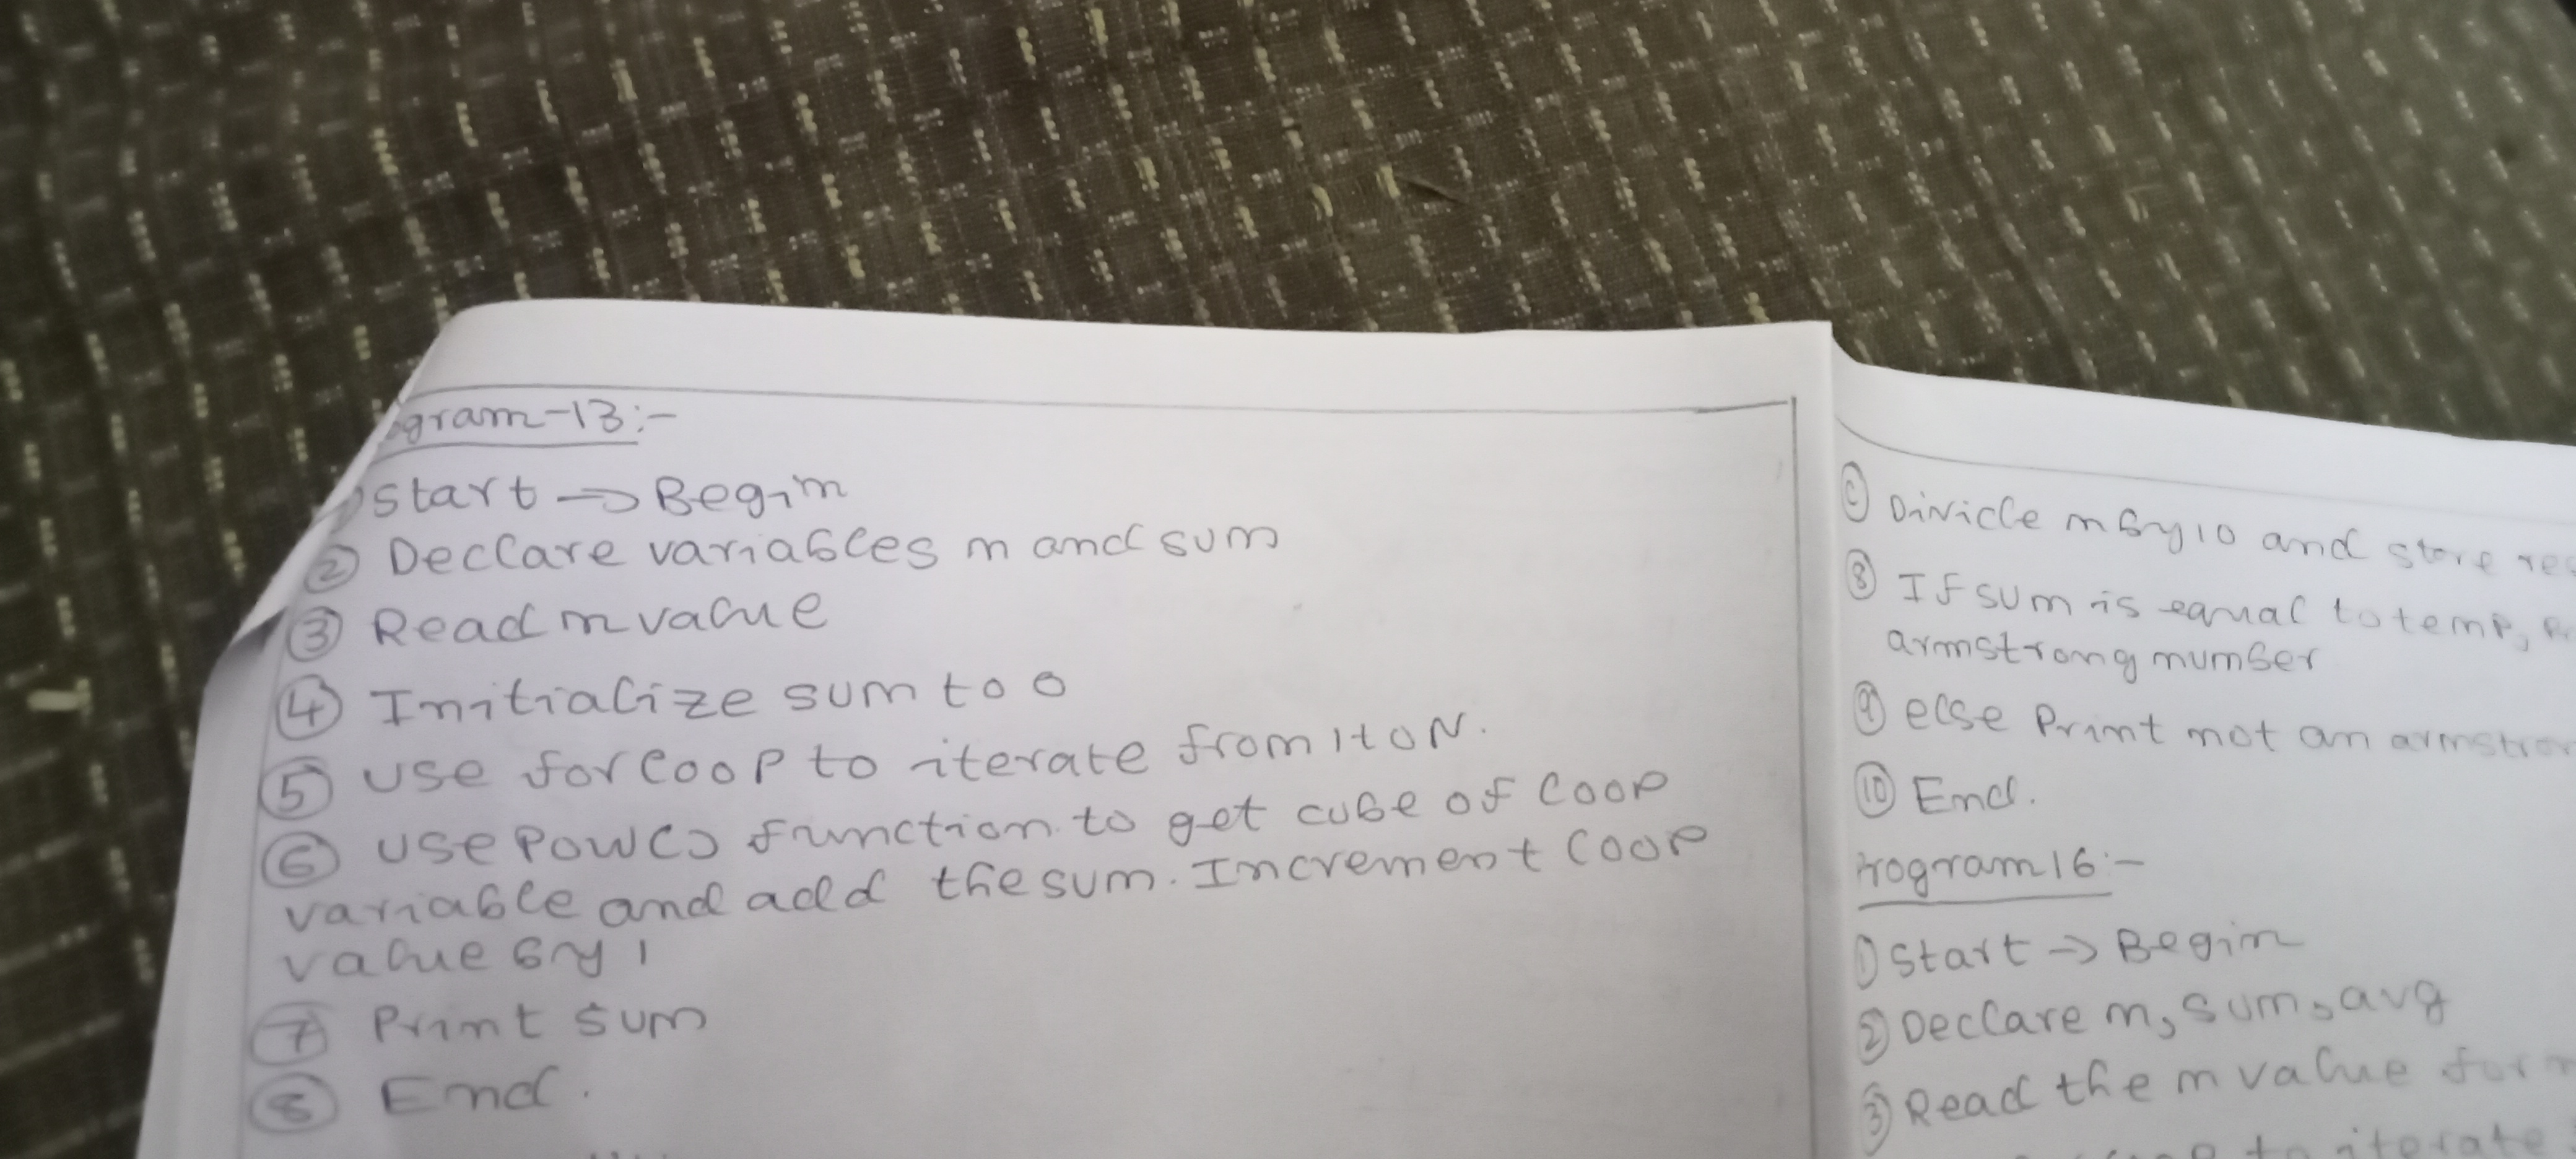 gram-13:-
Start → Begin
② Declare variables n and sum
③ Read n value
④ Initialize sum to 0
⑤ use for loop to iterate from 1 to N.
⑥ use pow() function to get cube of loop
variable and add the sum. Increment loop
value by 1
⑦ Print sum
⑧ End.
Divide n by 10 and store res
⑧ If sum is equal to temp,
armstrong number
⑨ else Print not an armstron
⑩ End.
rogram 16:-
① Start → Begin
② Declare n, sum, avg
③ Read the n value for
to iterate